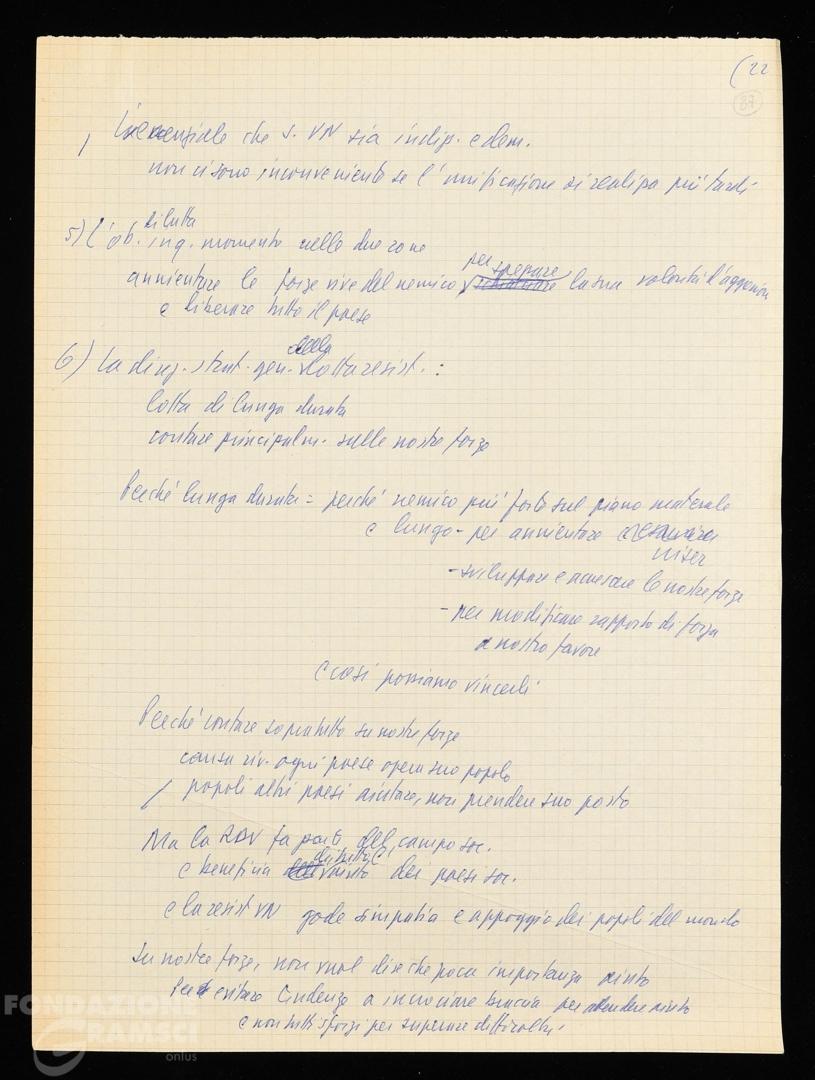 (22
87
l'essenziale che s. VN sia indip. e dem.
non ci sono inconveniente se l'unificazione si realizza più tardi
di lotta
5) l'ob. in q. momento nelle due zone
per spezzare
annientare le forze vive del nemico la sua volontà d'aggression
e liberare tutto il paese
della
6) La direz. strat. gen. lotta resist. :
lotta di lunga durata
contare principalm. sulle nostre forze
Perché lunga durata = perché nemico più forte sul piano materiale
e lungo - per annientare
- sviluppare e accrescere le nostre forze
- per modificare rapporto di forza
a nostro favore
e così possiamo vincerli
Perché contare sopratutto su nostre forze
causa riv. ogni paese opera suo popolo
/ popoli altri paesi aiutare, non prendere suo posto
Ma la RDV fa parte del campo soc.
e beneficia dei paesi soc.
e la resist VN gode simpatia e appoggio dei popoli del mondo
Su nostre forze, non vuol dire che poca importanza aiuto
Per evitare tendenze a incrociare braccia per attendere aiuto
e non tutti sforzi per superare difficoltà.
FONDAZIONE
GRAMSCI
onlus